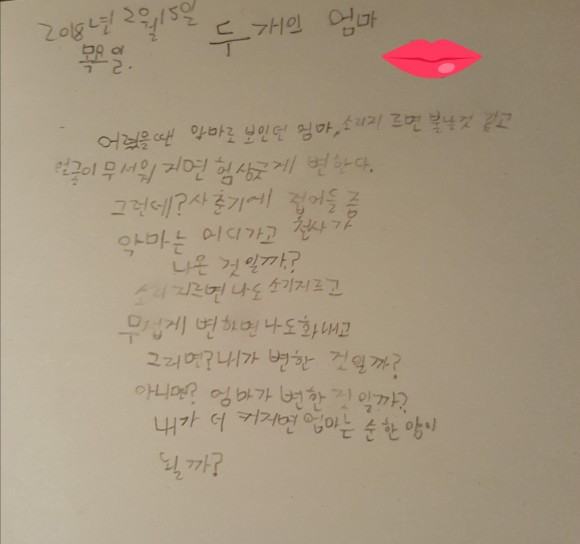 2018년 2월 15일 두 개의 엄마
목요일.
어렸을때 악마로 보인던 엄마, 소리지르면 불날것 같고
얼굴이 무서워 지면 험상궂게 변한다.
그런데? 사춘기에 접어들 즘
악마는 어디가고 천사가
나온 것일까?
소리지르면 나도 소리지르고
무섭게 변하면 나도 화내고
그러면? 내가 변한 것일까?
아니면? 엄마가 변한 것일까?
내가 더 커지면 엄마는 순한 양이
될까?